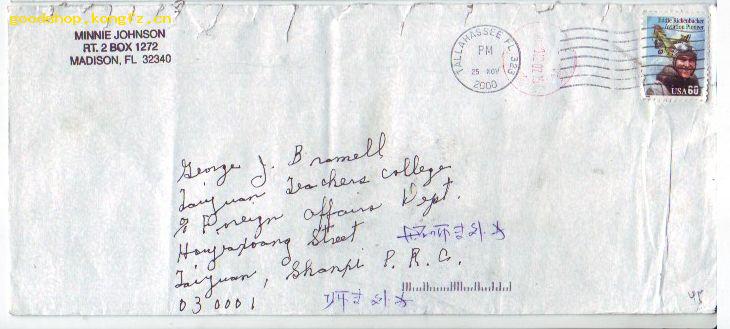 goodshop.kongfz.cn
MINNIE JOHNSON
RT. 2 BOX 1272
MADISON, FL 32340
TALLAHASSEE FL 323
PM
25 NOV
2000
Eddie Rickenbacker
Aviation Pioneer
USA 60
George J. Bramell
Taiyuan Teachers College
% Foreign Affairs Dept.
Street
Taiyuan, Shanxi P.R.C.
030001